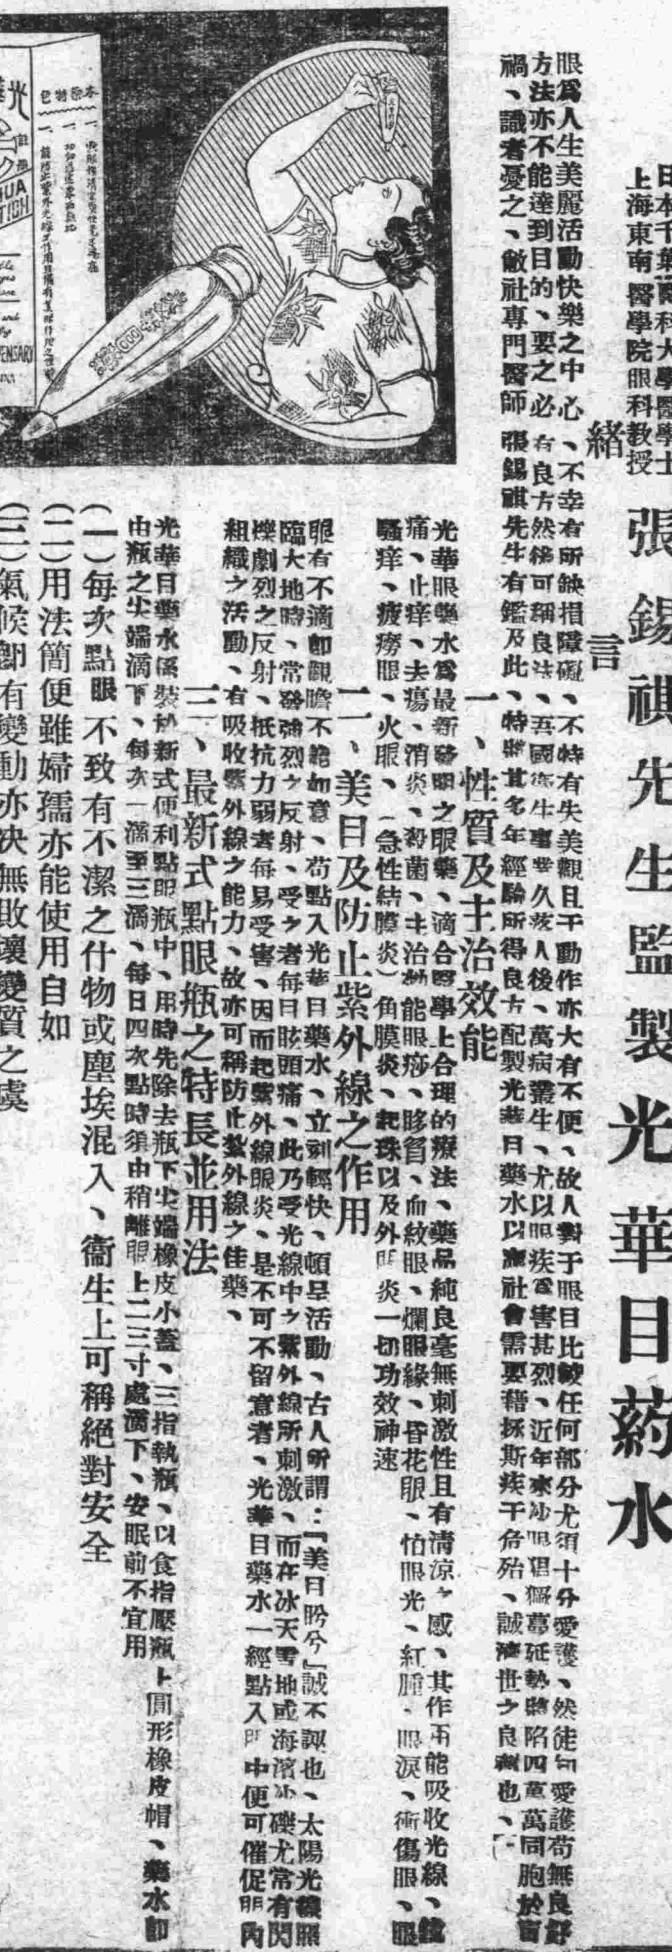 日本千葉醫科大學醫學士
上海東南醫學院眼科教授
張錫祺先生監製光華目葯水
緒言
眼爲人生美麗活動快樂之中心、不幸有所缺損障礙、不特有失美觀且于動作亦大有不便、故人對于眼目比較任何部分尤須十分愛護、然徒知愛護苟無良好
方法亦不能達到目的、要之必有良方然後可稱良法、吾國衛生事業久落人後、萬病叢生、尤以眼疾爲害甚烈、近年來沙眼猖獗蔓延勢將陷四萬萬同胞於盲
禍、識者憂之、敝社專門醫師張錫祺先生有鑑及此、特將其多年經驗所得良方配製光華目藥水以應社會需要藉拯斯疾于危殆、誠濟世之良劑也、
一、性質及主治效能
光華眼藥水爲最新發明之眼藥、適合醫學上合理的療法、藥品純良毫無刺激性且有清涼之感、其作用能吸收光線、鎮
痛、止痒、去瘍、消炎、殺菌、主治效能眼痧、眵眢、血紋眼、爛眼緣、昏花眼、怕眼光、紅腫、眼淚、衝傷眼、眼
騷痒、疲癆眼、火眼、(急性結膜炎)角膜炎、起珠以及外眼炎一切功效神速
二、美目及防止紫外線之作用
眼有不適卽觀瞻不能如意、苟點入光華目藥水、立刻輕快、頓呈活動、古人所謂:『美目盼兮』誠不誣也、太陽光線照
臨大地時、常發強烈之反射、受之者每目眩頭痛、此乃受光線中之紫外線所刺激、而在冰天雪地或海濱沙礫尤常有閃
爍劇烈之反射、抵抗力弱者每易受害、因而起紫外線眼炎、是不可不留意者、光華目藥水一經點入眼中便可催促眼內
組織之活動、有吸收紫外線之能力、故亦可稱防止紫外線之佳藥、
三、最新式點眼瓶之特長並用法
光華目藥水係裝於新式便利點眼瓶中、用時先除去瓶下尖端橡皮小蓋、三指執瓶、以食指壓瓶上圓形橡皮帽、藥水卽
由瓶之尖端滴下、每次一滴至三滴、每日四次點時須由稍離眼上二三寸處滴下、安眠前不宜用
(一)每次點眼不致有不潔之什物或塵埃混入、衞生上可稱絕對安全
(二)用法簡便雖婦孺亦能使用自如
(三)氣候卽有變動亦決無敗壞變質之虞
本藥特色